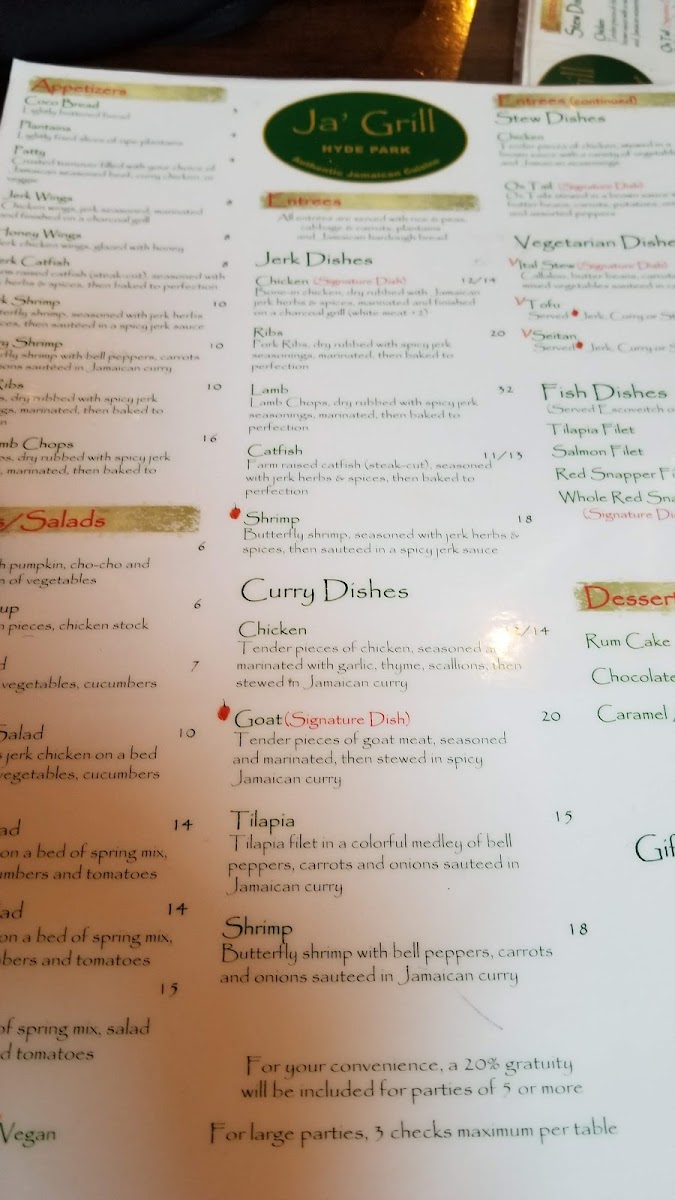 Appetizers
Coco Bread
Lightly buttered bread
Plantains
Lightly fried slices of ripe plantains
Patty
Crusted turnover filled with your choice of
Jamaican seasoned beef, curry chicken, or
veggie
Jerk Wings 8
Chicken wings, jerk seasoned, marinated
and finished on a charcoal grill
Honey Wings 8
jerk chicken wings, glazed with honey
erk Catfish 8
rm raised catfish (steak-cut), seasoned with
k herbs & spices, then baked to perfection
k Shrimp 10
terfly shrimp, seasoned with jerk herbs
ices, then sauteed in a spicy jerk sauce
y Shrimp 10
fly shrimp with bell peppers, carrots
ions sauteed in Jamaican curry
Ribs 10
s, dry rubbed with spicy jerk
gs, marinated, then baked to
n
mb Chops 16
ps, dry rubbed with spicy jerk
, marinated, then baked to
s/Salads
6
h pumpkin, cho-cho and
n of vegetables
up 6
n pieces, chicken stock
d 7
vegetables, cucumbers
Salad 10
s jerk chicken on a bed
vegetables, cucumbers
ad 14
on a bed of spring mix,
umbers and tomatoes
lad 14
on a bed of spring mix,
bers and tomatoes
15
of spring mix, salad
d tomatoes
Vegan
Ja' Grill
HYDE PARK
Authentic Jamaican Cuisine
Entrees
All entrees are served with rice & peas,
cabbage & carrots, plantains
and Jamaican hardough bread
Jerk Dishes
Chicken (Signature Dish) 12/14
Bone-in chicken, dry rubbed with Jamaican
jerk herbs & spices, marinated and finished
on a charcoal grill (white meat +2)
Ribs 20
Pork Ribs, dry rubbed with spicy jerk
seasonings, marinated, then baked to
perfection
Lamb 32
Lamb Chops, dry rubbed with spicy jerk
seasonings, marinated, then baked to
perfection
Catfish 11/13
Farm raised catfish (steak-cut), seasoned
with jerk herbs & spices, then baked to
perfection
Shrimp 18
Butterfly shrimp, seasoned with jerk herbs &
spices, then sauteed in a spicy jerk sauce
Curry Dishes
Chicken /14
Tender pieces of chicken, seasoned
marinated with garlic, thyme, scallions, then
stewed in Jamaican curry
Goat (Signature Dish) 20
Tender pieces of goat meat, seasoned
and marinated, then stewed in spicy
Jamaican curry
Tilapia 15
Tilapia filet in a colorful medley of bell
peppers, carrots and onions sauteed in
Jamaican curry
Shrimp 18
Butterfly shrimp with bell peppers, carrots
and onions sauteed in Jamaican curry
For your convenience, a 20% gratuity
will be included for parties of 5 or more
For large parties, 3 checks maximum per table
Entrees (continued)
Stew Dishes
Chicken
Tender pieces of chicken, stewed in a
brown sauce with a variety of vegetable
and Jamaican seasonings
Ox Tail (Signature Dish)
Ox Tails stewed in a brown sauce
butter beans, carrots, potatoes,
and assorted peppers
Vegetarian Dishe
V Ital Stew (Signature Dish)
Callaloo, butter beans, carrots
mixed vegetables sauteed in
V Tofu
Served Jerk, Curry or St
V Seitan
Served Jerk, Curry or S
Fish Dishes
(Served Escoveitch o
Tilapia Filet
Salmon Filet
Red Snapper Fi
Whole Red Sna
(Signature Di
Dessert
Rum Cake
Chocolate
Caramel
Gif